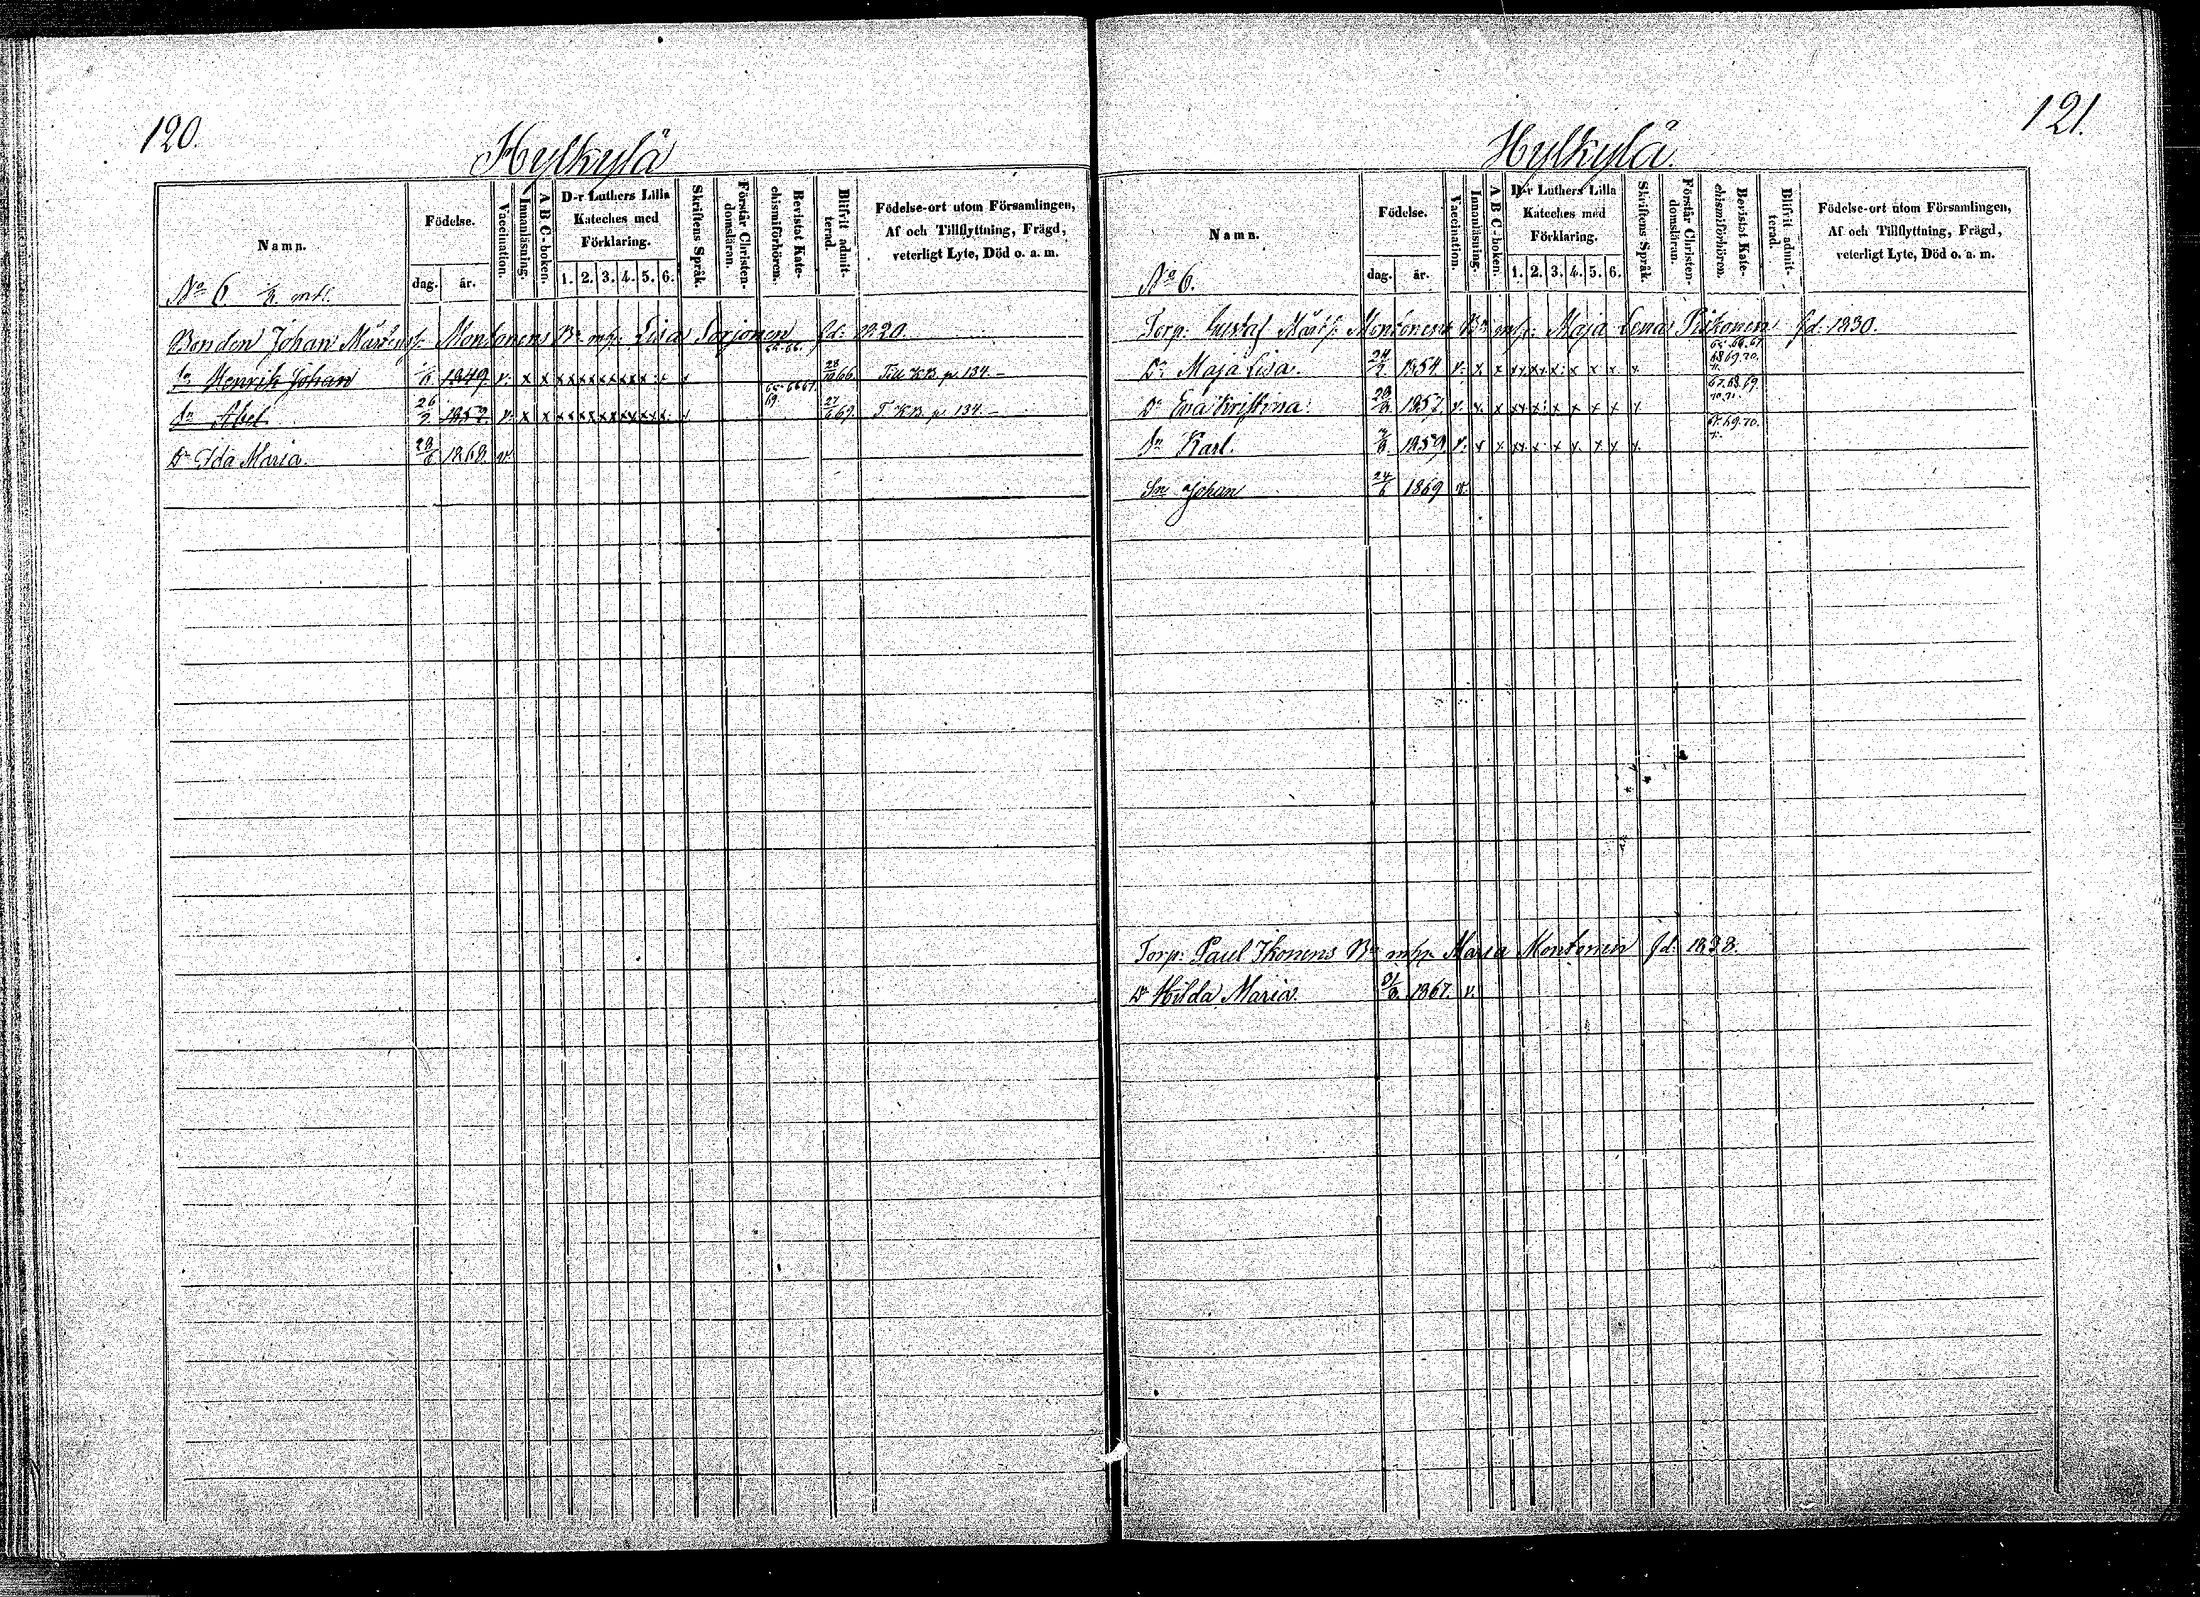 120.
Hylkylä
Namn.
Födelse.
dag. år.
Vaccination.
Innanläsning.
A B C-boken.
D-r Luthers Lilla
Kateches med
Förklaring.
1. 2. 3. 4. 5. 6.
Skriftens Språk.
Förstår Christen-
domsläran.
Bevistat Kate-
chismiförhören.
Blifvit admit-
terad.
Födelse-ort utom Församlingen,
Af och Tillflyttning, Frägd,
veterligt Lyte, Död o. a. m.
No 6. mtl.
Bonden Johan Mårtensf. Montonens Bn mh. Lisa Sorjonen fd: 1820.
Sn Henrik Johan 1849. v. x x x x x x x x x 65. 66. 28/10 66. Till KB p. 134. –
Sn Abel 26/2 1852. v. x x x x x x x x x 65. 66 67. 69. 27/6 69. T. KB p. 134. –
Dr Ida Maria. 28/6 1868. v.
121.
Hylkylä.
Namn.
Födelse.
dag. år.
Vaccination.
Innanläsning.
A B C-boken.
D-r Luthers Lilla
Kateches med
Förklaring.
1. 2. 3. 4. 5. 6.
Skriftens Språk.
Förstår Christen-
domsläran.
Bevistat Kate-
chismiförhören.
Blifvit admit-
terad.
Födelse-ort utom Församlingen,
Af och Tillflyttning, Frägd,
veterligt Lyte, Död o. a. m.
No 6.
Torp. Gustaf Mårtsf. Montonens Bn mh. Maja Lena Piikonen fd. 1830.
Dr Maja Lisa. 24/2 1854 v. x x x x x x x x x 65. 66. 67. 68 69. 70. 71.
Dr Eva Kristina. 28/3 1857. v. x x x x x x x x x 67. 68. 69. 70. 71.
Sn Karl. 1859. v. x x x x x x x x x 69. 70.
Sn Johan 24/6 1869 v.
Torp: Paul Ikonens Bn mh. Maria Montonen fd. 1838.
Dr Hilda Maria. 1867. v.